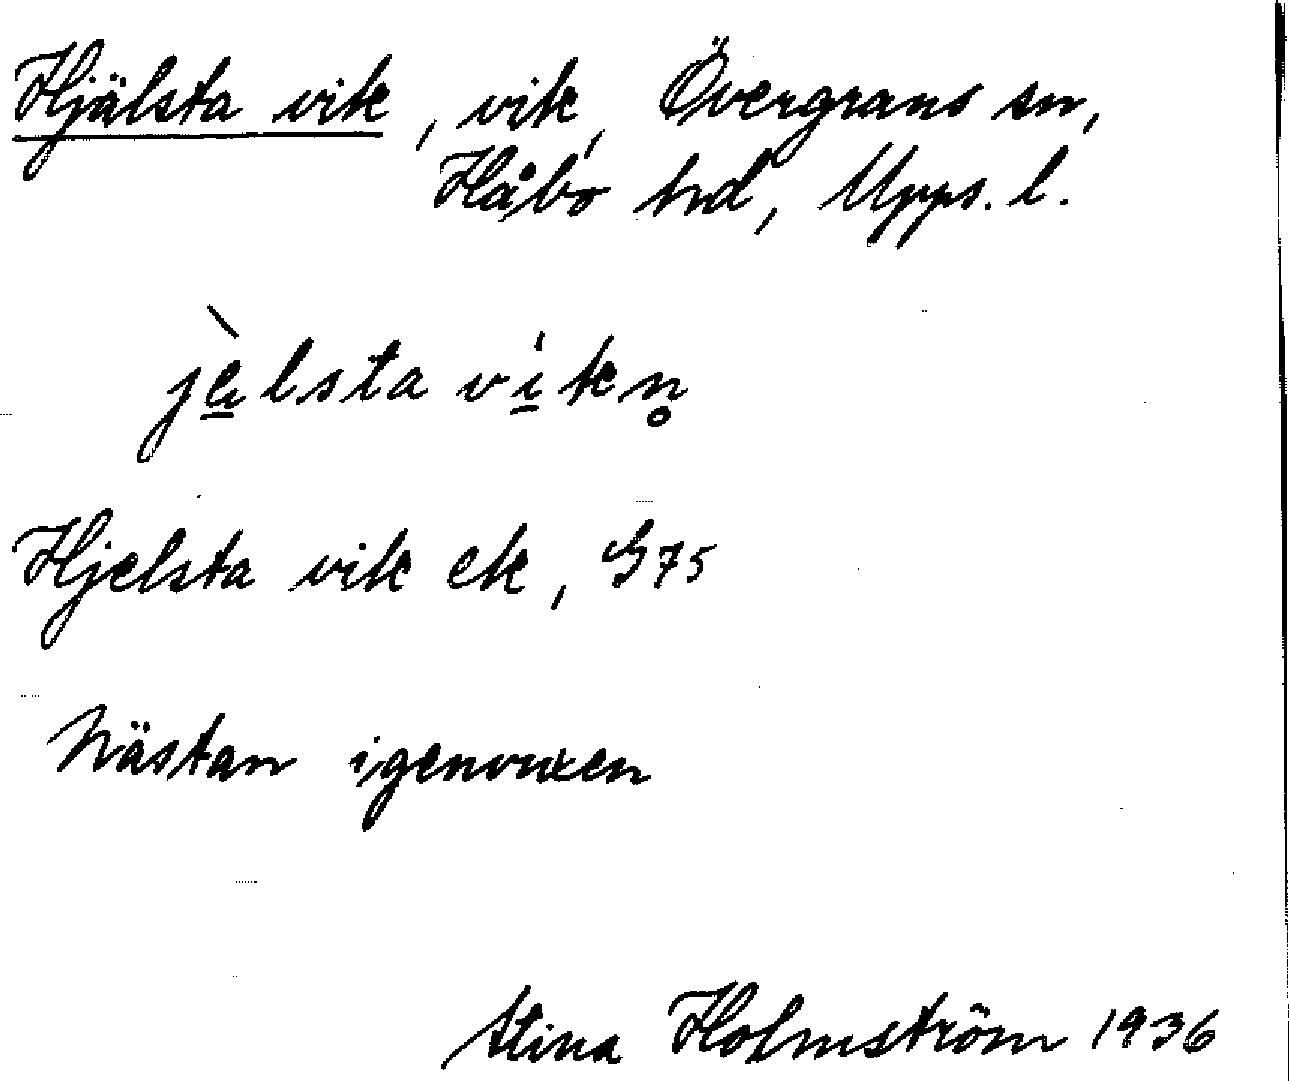 Hjälsta vik, vik, Övergrans sn,
Håbo hd, Upps. l.
jälsta vikn̥
Hjelsta vik ek, G75
Nästan igenvuxen
Stina Holmström 1936